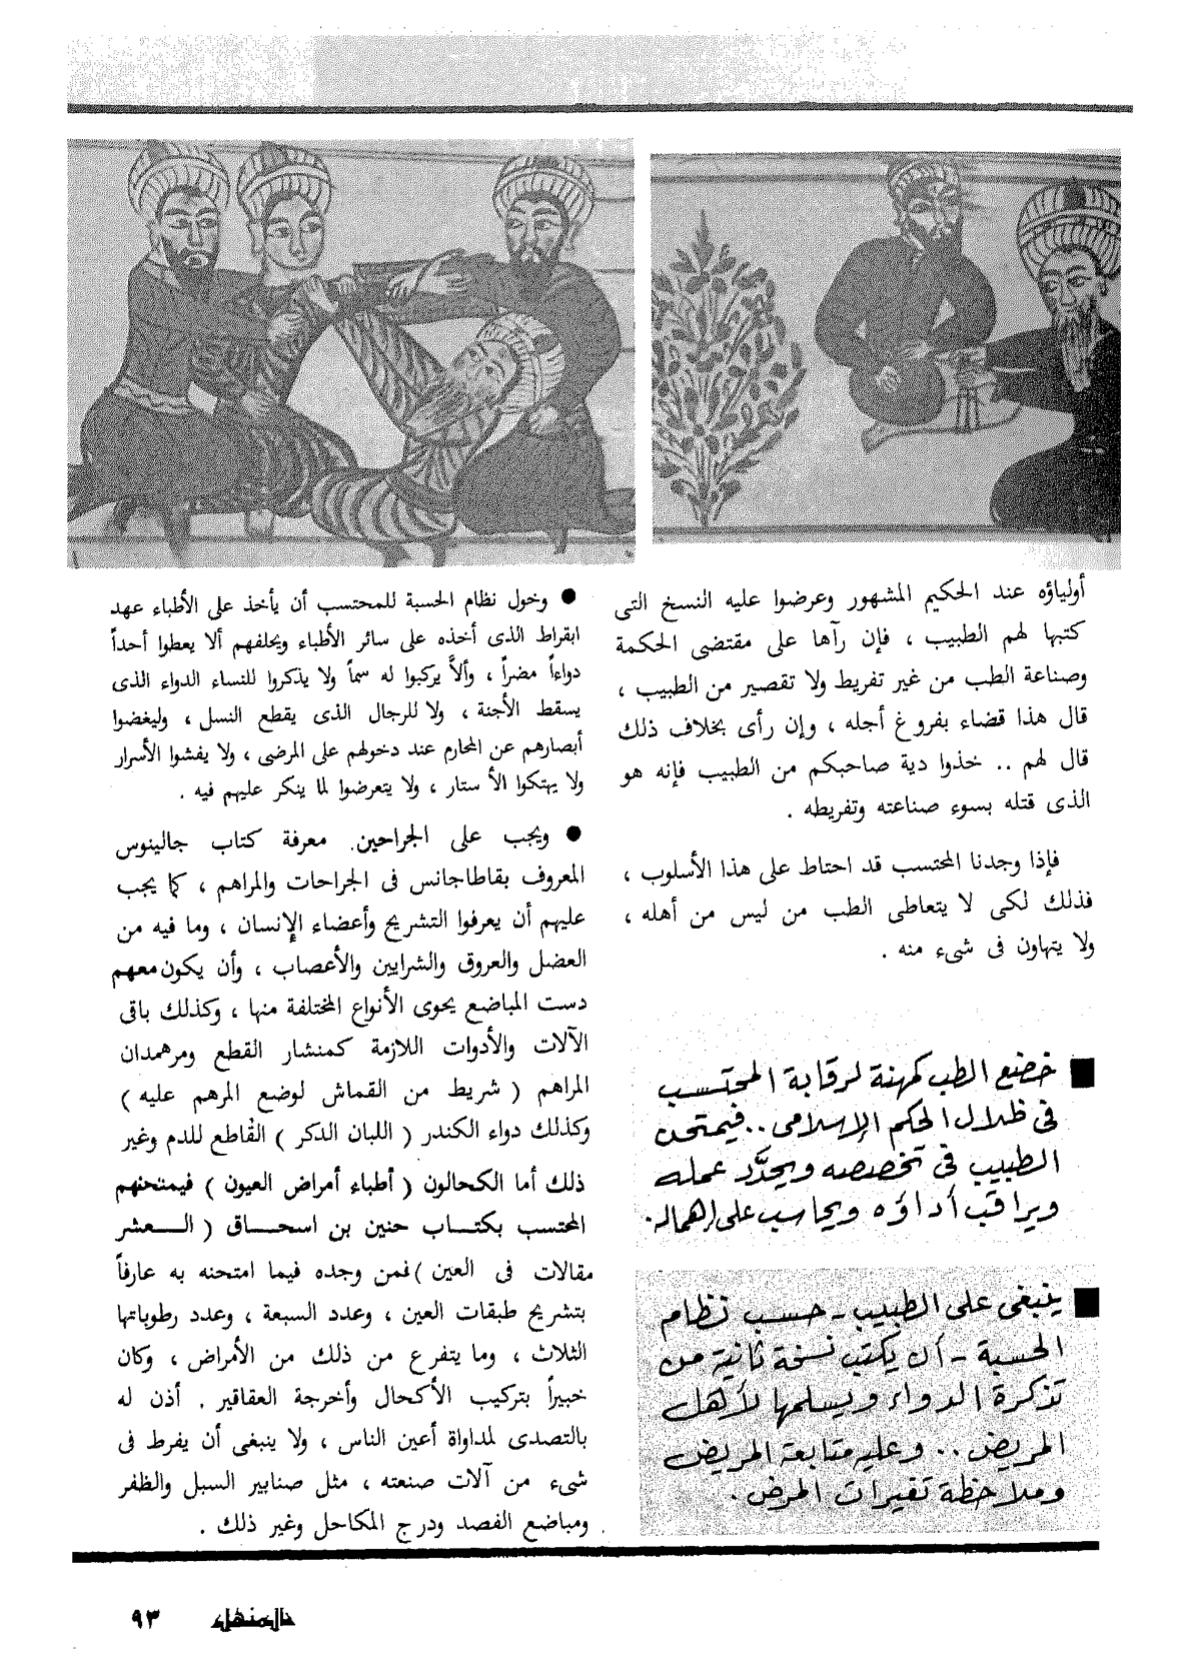 أولياؤه عند الحكيم المشهور وعرضوا عليه النسخ التى
كتبها لهم الطبيب ، فإن رآها على مقتضى الحكمة
وصناعة الطب من غير تفريط ولا تقصير من الطبيب ،
قال هذا قضاء بفروغ أجله ، وإن رأى بخلاف ذلك
قال لهم .. خذوا دية صاحبكم من الطبيب فإنه هو
الذى قتله بسوء صناعته وتفريطه .
فإذا وجدنا المحتسب قد احتاط على هذا الأسلوب ،
فذلك لكى لا يتعاطى الطب من ليس من أهله ،
ولا يتهاون فى شىء منه .
■ خضع الطب كمهنة لرقابة المحتسب
فى ظلال الحكم الإسلامى .. فيمتحن
الطبيب فى تخصصه ويحدَّد عمله
ويراقب أداؤه ويحاسب على إهماله .
■ ينبغى على الطبيب - حسب نظام
الحسبة - أن يكتب نسخة ثانية من
تذكرة الدواء ويسلمها لأهل
المريض .. وعليه متابعة المريض
وملاحظة تغيرات المرض .
● وخول نظام الحسبة للمحتسب أن يأخذ على الأطباء عهد
ابقراط الذى أخذه على سائر الأطباء ويحلفهم ألا يعطوا أحداً
دواءاً مضراً ، وألاَّ يركبوا له سماً ولا يذكروا للنساء الدواء الذى
يسقط الأجنة ، ولا للرجال الذى يقطع النسل ، وليغضوا
أبصارهم عن المحارم عند دخولهم على المرضى ، ولا يفشوا الأسرار
ولا يهتكوا الأ ستار ، ولا يتعرضوا لما ينكر عليهم فيه .
● ويجب على الجراحين. معرفة كتاب جالينوس
المعروف بقاطاجانس فى الجراحات والمراهم ، كما يجب
عليهم أن يعرفوا التشريح وأعضاء الإنسان ، وما فيه من
العضل والعروق والشرايين والأعصاب ، وأن يكون معهم
دست المباضع يحوى الأنواع المختلفة منها ، وكذلك باقى
الآلات والأدوات اللازمة كمنشار القطع ومرهمدان
المراهم ( شريط من القماش لوضع المرهم عليه )
وكذلك دواء الكندر ( اللبان الذكر ) القاطع للدم وغير
ذلك أما الكحالون ( أطباء أمراض العيون ) فيمتحنهم
المحتسب بكتـاب حنين بن اسحـاق ( الـعشر
مقالات فى العين ) فمن وجده فيما امتحنه به عارفاً
بتشريح طبقات العين ، وعدد السبعة ، وعدد رطوباتها
الثلاث ، وما يتفرع من ذلك من الأمراض ، وكان
خبيراً بتركيب الأكحال وأخرجة العقاقير . أذن له
بالتصدى لمداواة أعين الناس ، ولا ينبغى أن يفرط فى
شىء من آلات صنعته ، مثل صنابير السبل والظفر
ومباضع الفصد ودرج المكاحل وغير ذلك .
المنهل ٩٣